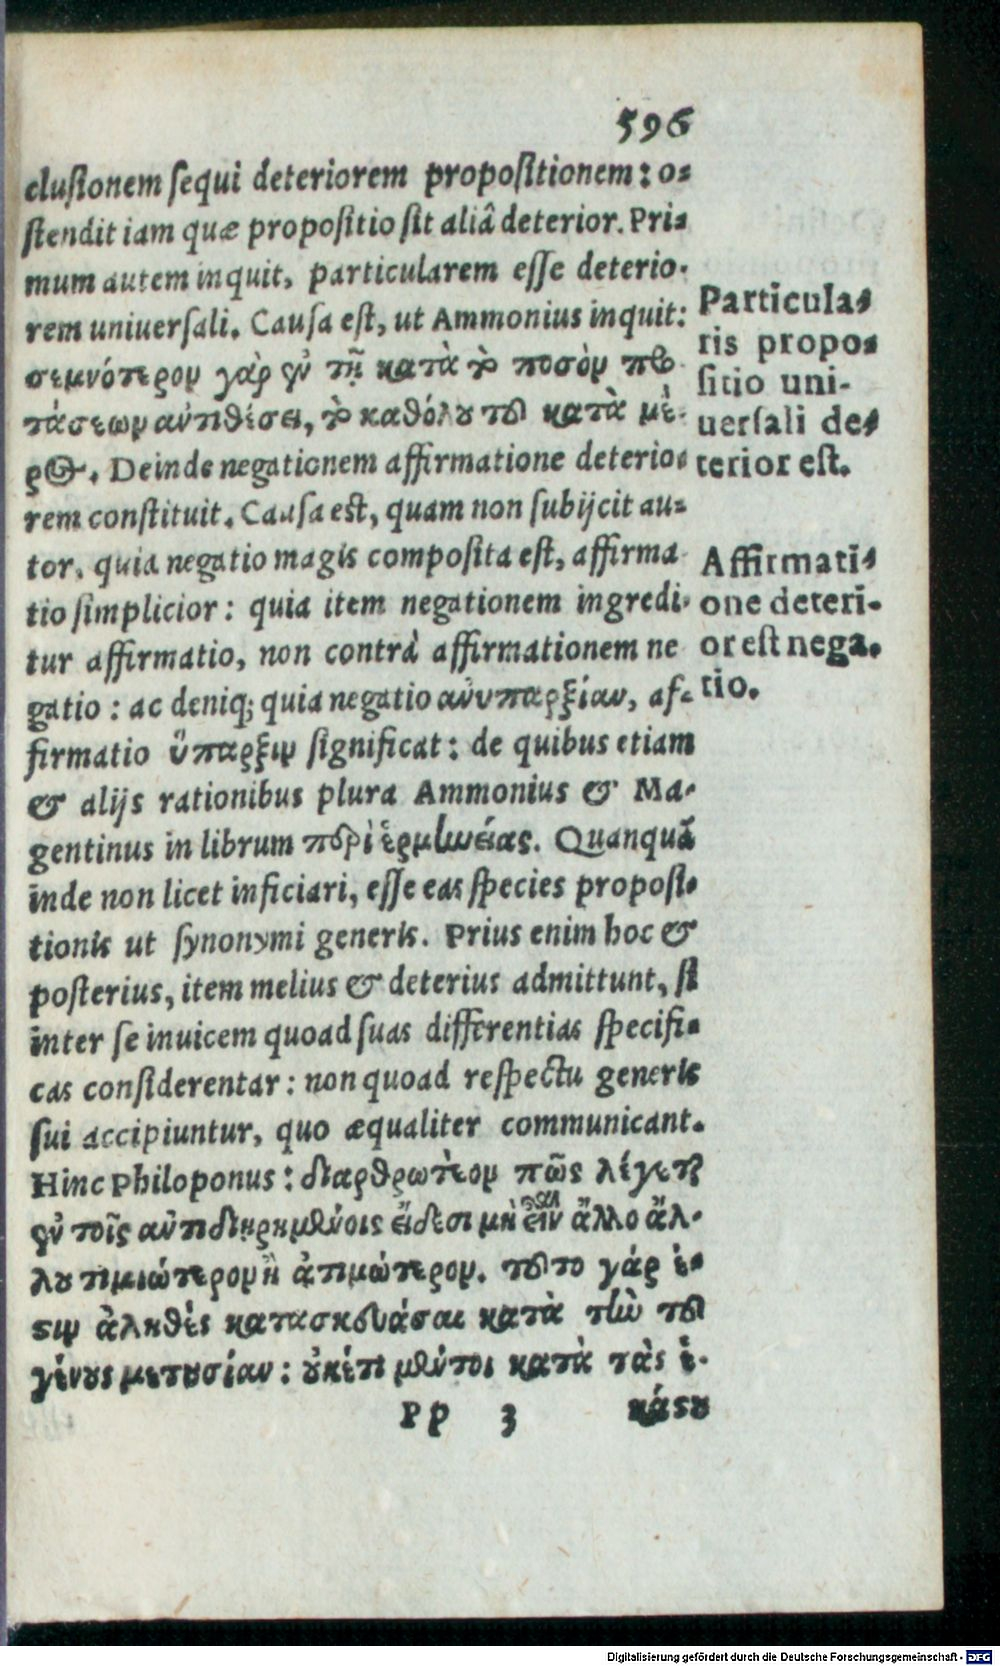 596
clusionem sequi deteriorem propositionem: o-
stendit iam quæ propositio sit aliâ deterior. Pri-
mum autem inquit, particularem esse deterio-
rem uniuersali. Causa est, ut Ammonius inquit:
σεμνότερον γὰρ ἐν τῇ κατὰ τὸ ποσὸν προ-
τάσεων ἀντιθέσει, τὸ καθόλου τοῦ κατὰ μέ-
ρος. Deinde negationem affirmatione deterio-
rem constituit. Causa est, quam non subijcit au-
tor, quia negatio magis composita est, affirma-
tio simplicior: quia item negationem ingredi-
tur affirmatio, non contrà affirmationem ne
gatio: ac deniq; quia negatio ἀνυπαρξίαν, af-
firmatio ὕπαρξιν significat: de quibus etiam
& alijs rationibus plura Ammonius & Ma-
gentinus in librum περὶ ἑρμηνείας. Quanquã
inde non licet inficiari, esse eas species proposi-
tionis ut synonymi generis. Prius enim hoc &
posterius, item melius & deterius admittunt, si
inter se inuicem quoad suas differentias specifi-
cas considerentar: non quoad respectu generis
sui accipiuntur, quo æqualiter communicant.
Hinc Philoponus: διαρθρωτέον πῶς λέγεται
ἐν τοῖς ἀντιδιῃρημένοις εἴδεσι μὴ εἶναι ἄλλο ἄλ-
λου τιμιώτερον ἢ ἀτιμώτερον. τοῦτο γάρ ἐ-
στιν ἀληθὲς κατασκευάσαι κατὰ τὴν τοῦ
γένους μετουσίαν: οὐκέτι μέντοι κατὰ τὰς ἑ-
Pp 3 κάστου
Particula-
ris propo-
sitio uni-
uersali de-
terior est.
Affirmati-
one deteri-
or est nega-
tio.
Digitalisierung gefördert durch die Deutsche Forschungsgemeinschaft - DFG